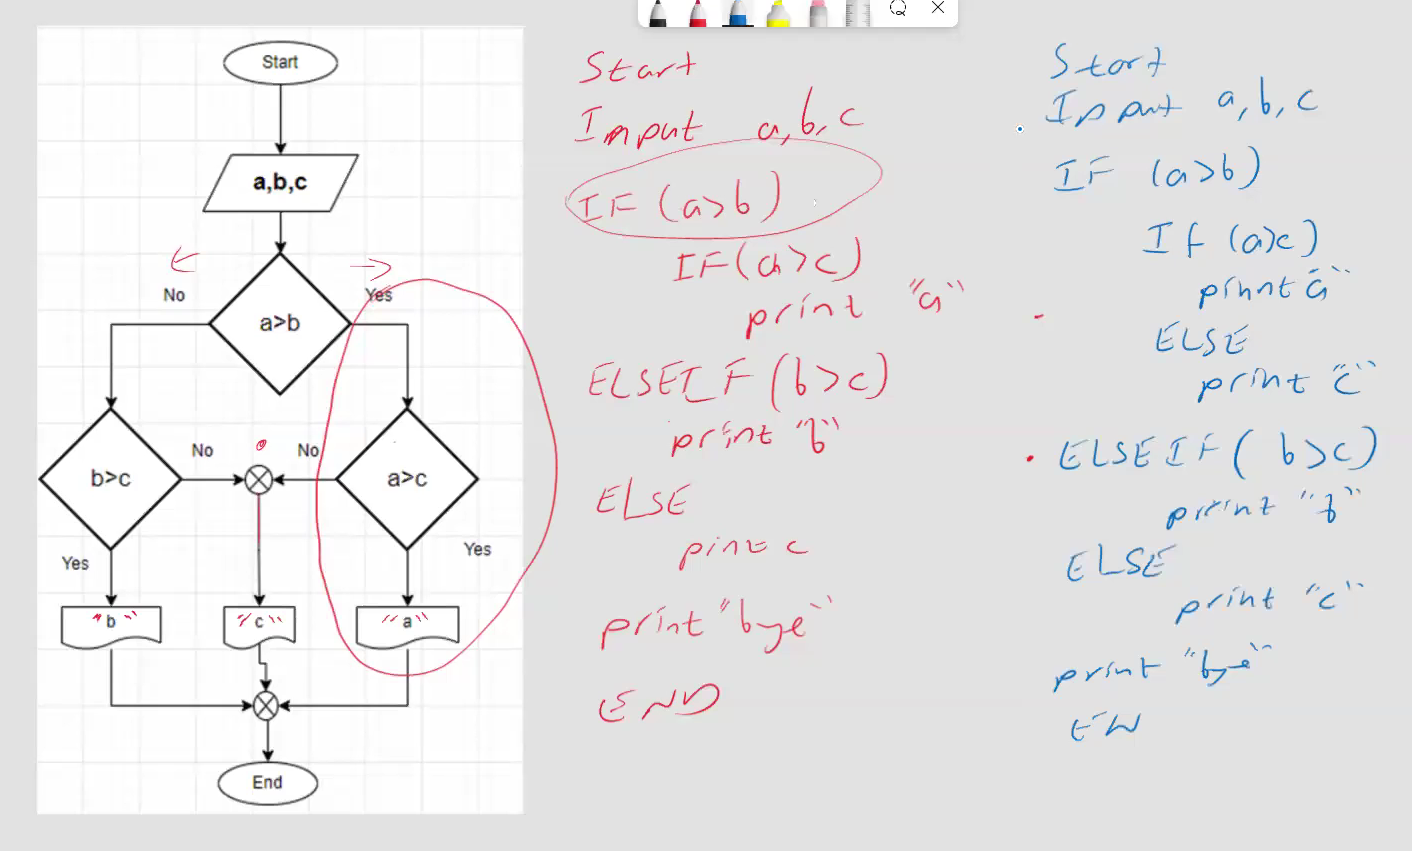 Start
a,b,c
No
Yes
a>b
b>c
No
No
a>c
Yes
Yes
"b"
"c"
"a"
End
Start
Input a,b,c
IF (a>b)
IF(a>c)
print "a"
ELSEIF (b>c)
print "b"
ELSE
pint c
print "bye"
END
Start
Input a,b,c
IF (a>b)
If (a>c)
print "a"
ELSE
print "c"
ELSEIF( b>c)
print "b"
ELSE
print "c"
print "bye"